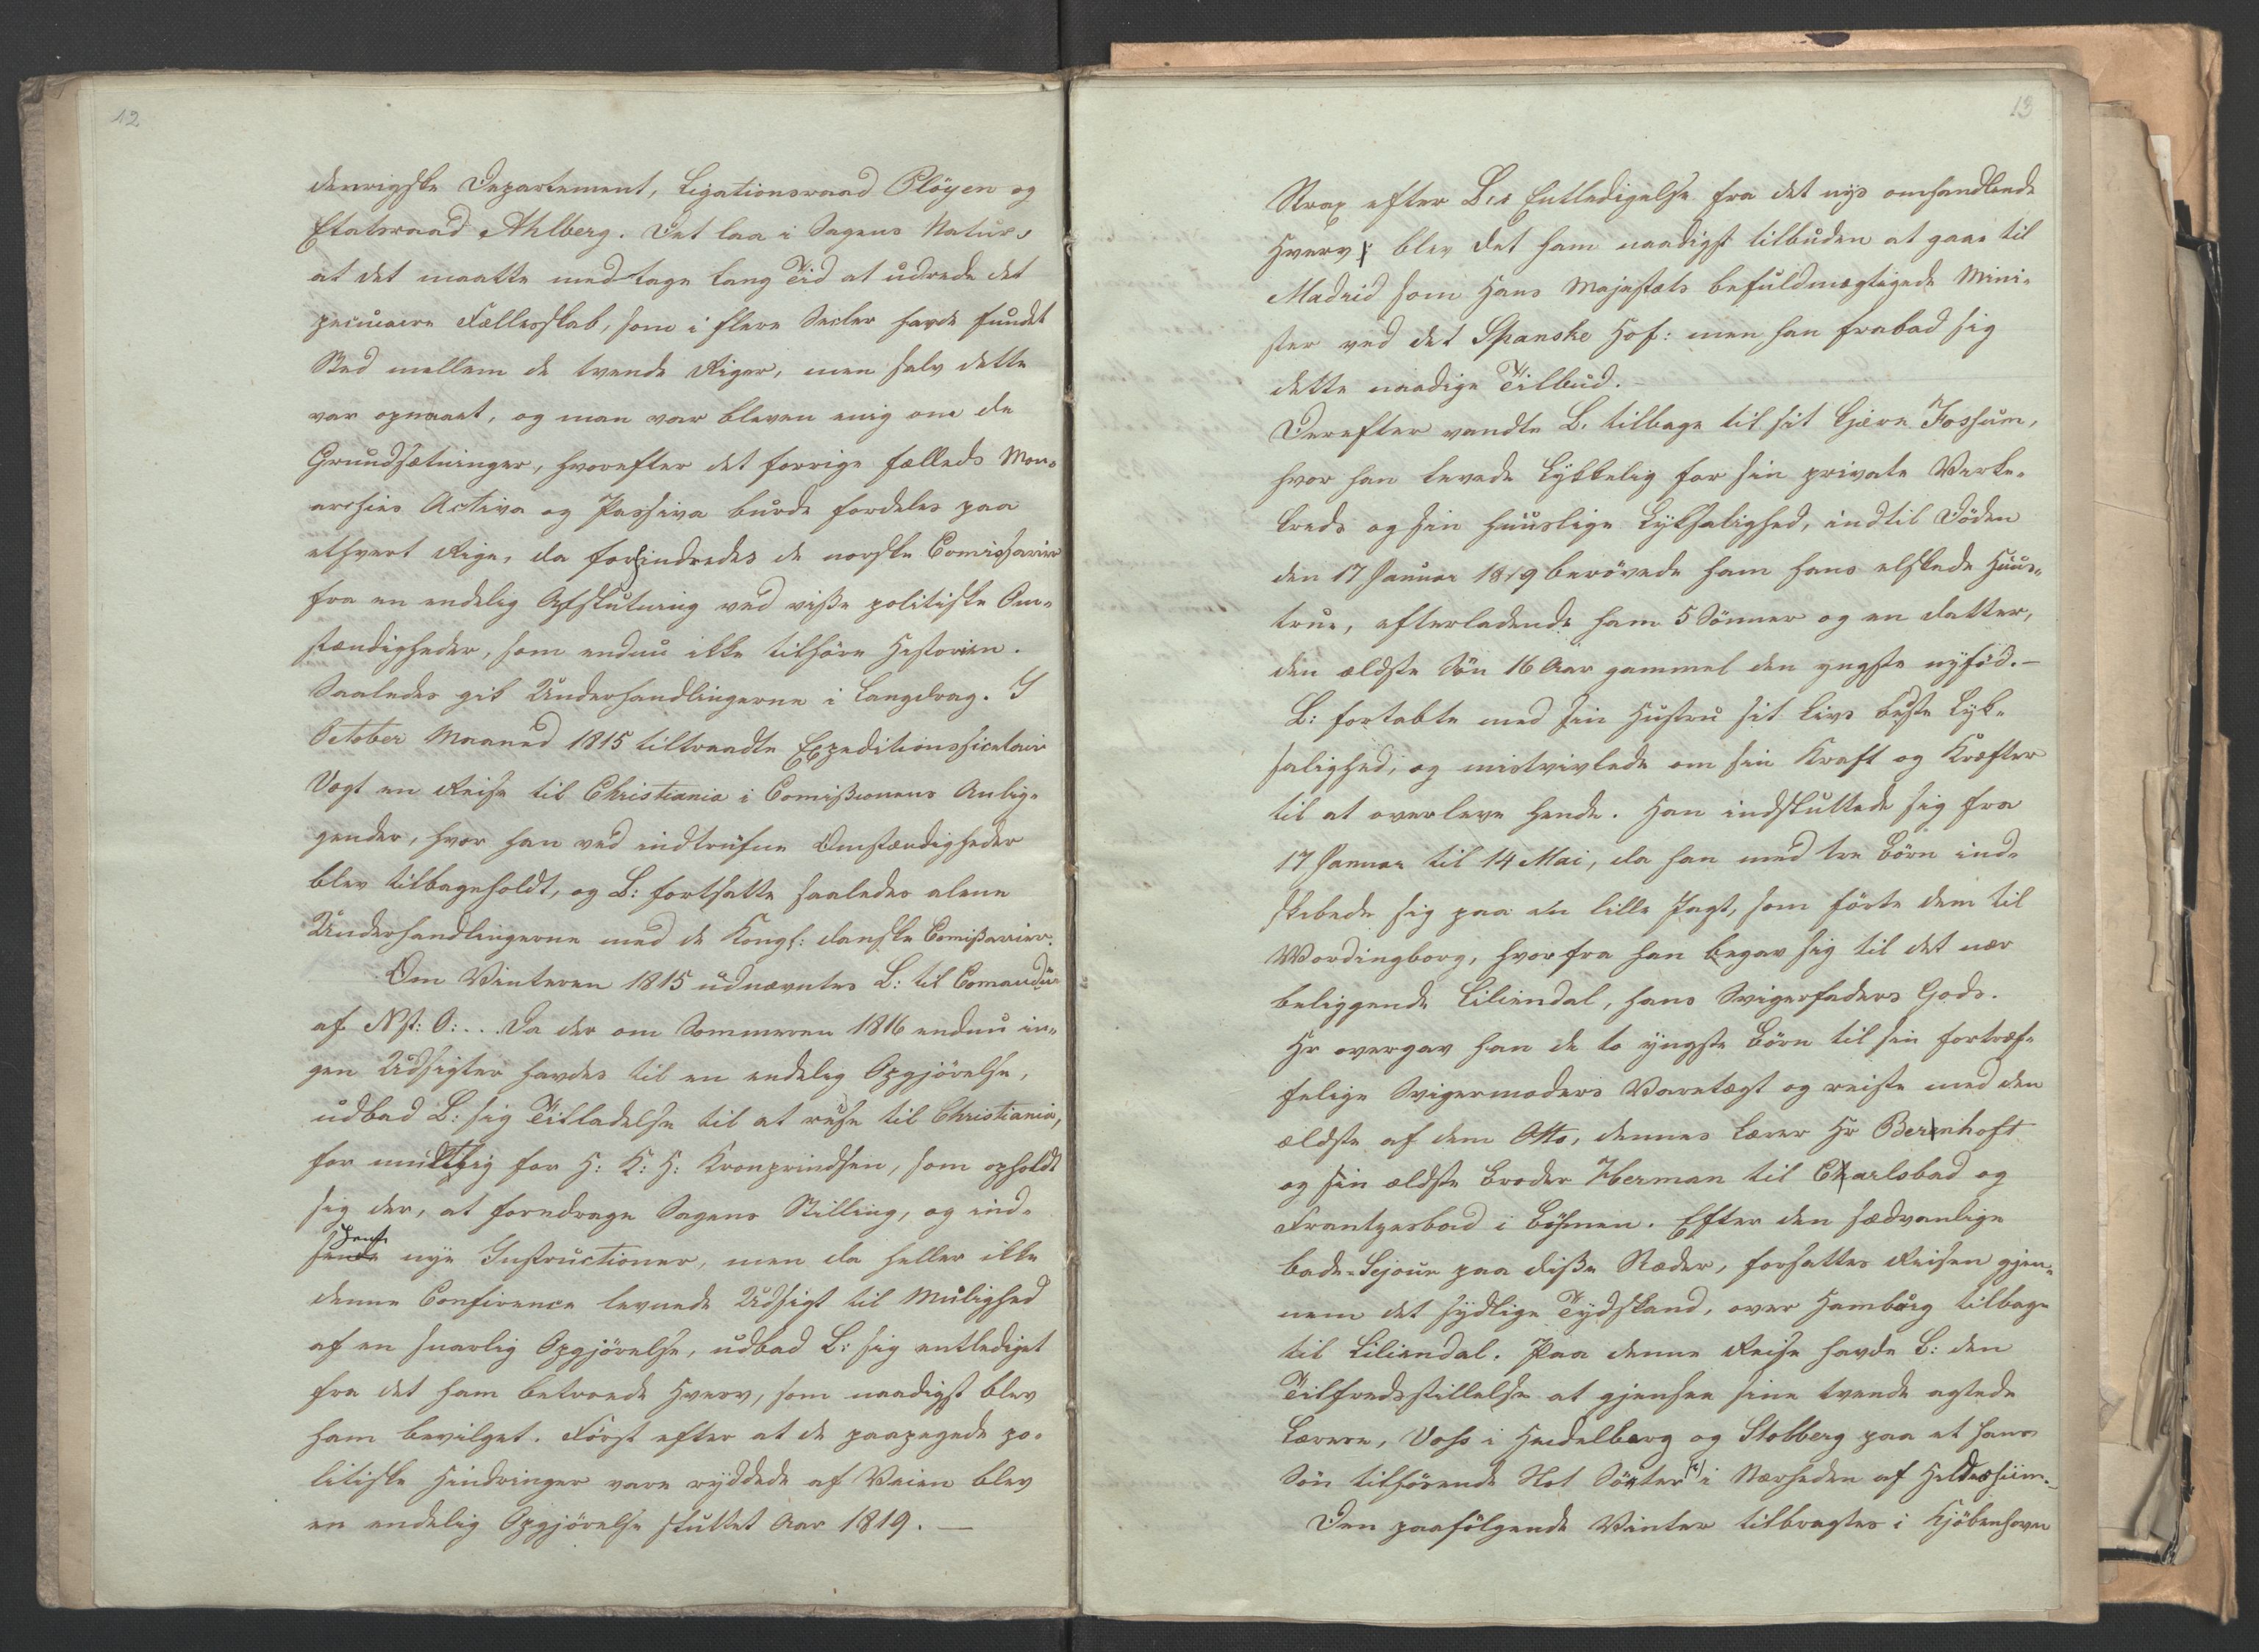 12
denrigske Departement, Legationsraad Pløyen og
Etatsraad Ahlberg. Det laa i Sagens Natur,
at det maatte medtage lang Tid at udrede det
pecuniære Fællesskab, som i flere Secler havde fundet
Sted mellem de tvende Riger, men selv dette
var opnaaet, og man var bleven enig om de
Grundsætninger, hvorefter det forrige fælleds Mon-
archies Activa og Passiva burde fordeles paa
ethvert Rige, da forhindredes de norske Comissarier
fra en endelig Afslutning ved visse politiske Om-
stændigheder, som endnu ikke tilhöre Historien.
Saaledes gik Underhandlingerne i Langdrag. I
October Maaned 1815 tiltraadte Expeditionssecretair
Vogt en Reise til Christiania i Comissionens Anlig-
gender, hvor han ved indtrufne Omstændigheder
blev tilbageholdt, og L: fortsatte saaledes alene
Underhandlingerne med de Kongl: danske Comissarier.
Om Vinteren 1815 udnævntes L: til Comandör
af N.st: O:... Da der om Sommeren 1816 endnu in-
gen Udsigter havdes til en endelig Opgjörelse,
udbad L: sig Tilladelse til at reise til Christiania,
for mundtlig for H: K: H: Kronprindsen, som opholdt
sig der, at foredrage Sagens Stilling, og ind-
hente nye Instructioner, men da heller ikke
denne Conference levnede Udsigt til Mulighed
af en snarlig Opgjörelse, udbad L: sig entlediget
fra det ham betroede Hverv, som naadigst blev
ham bevilget. Först efter at de paapegede po-
litiske Hindringer vare ryddede af Veien blev
en endelig Opgjörelse sluttet Aar 1819. —
13
Strax efter L.s Entledigelse fra det nys omhandlede
Hverv blev det ham naadigst tilbuden at gaae til
Madrid som Hans Majestæts befuldmægtigede Mini-
ster ved det Spanske Hof: men han frabad sig
dette naadige Tilbud. —
Derefter vendte L. tilbage til sit kjære Fossum,
hvor han levede lykkelig for sin private Virke-
kreds og sin huuslige Lyksalighed, indtil Döden
den 17 Januar 1819 berövede ham hans elskede Huus-
true, efterladende ham 5 Sönner og en Datter,
den ældste Sön 16 Aar gammel den yngste nyföd. —
L: fortabte med sin Hustru sit Livs bedste Lyk-
salighed, og mistvivlede om sin Kraft og Kræfter
til at overleve hende. Han indsluttede sig fra
17 Januar til 14 Mai, da han med tre Börn ind-
skibede sig paa en lille Jagt, som förte dem til
Wordingborg, hvorfra han begav sig til det nær
beliggende Liliendal, hans Svigerfaders Gods.
Hr overgav han de to yngste Börn til sin fortræf-
felige Svigermoders Varetægt og reiste med den
ældste af dem Otto, dennes Lærer Hr Berenhoft
og sin ældste Broder Herman til Carlsbad og
Frantzesbad i Böhmen. Efter den sædvanlige
bade-Sejour paa disse Stæder, forsattes Reisen gjen-
nem det sydlige Tydskland, over Hamburg tilbage
til Liliendal. Paa denne Reise havde L: den
Tilfredsstillelse at gjensee sine tvende agtede
Lærere, Voss i Heidelberg og Stolberg paa et hans
Sön tilhörende Slot Sönter i Nærheden af Hildesheim.
Den paafölgende Vinter tilbragtes i Kjöbenhavn